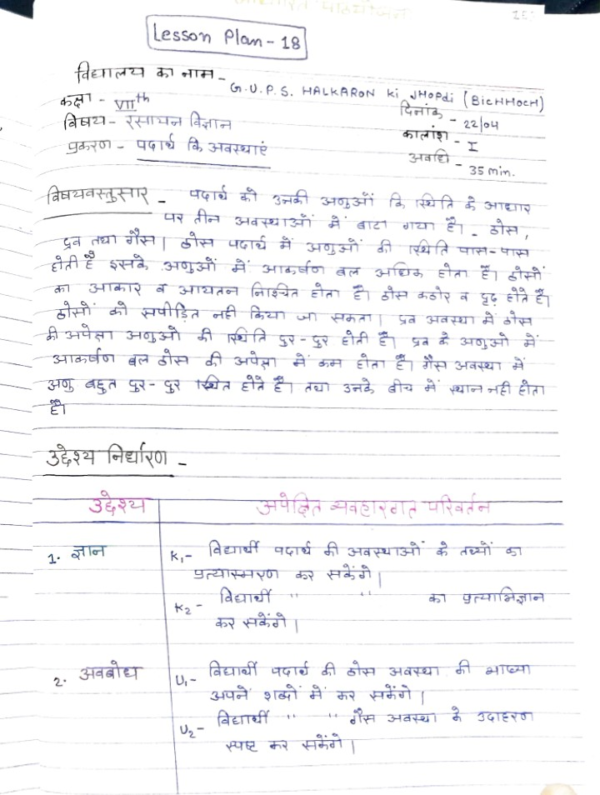 Lesson Plan - 18
विद्यालय का नाम - G.U.P.S. HALKARON ki JHOPdi (BICHHOCH)
कक्षा - VIIth
दिनांक - 22/04
विषय - रसायन विज्ञान
कालांश - I
प्रकरण - पदार्थ कि अवस्थाएं
अवधि - 35 min.
विषयवस्तुसार - पदार्थ को उनकी अणुओं कि स्थिति के आधार
पर तीन अवस्थाओं में बाटा गया है। - ठोस,
द्रव तथा गैस। ठोस पदार्थ में अणुओं की स्थिति पास-पास
होती है इसके अणुओं में आकर्षण बल अधिक होता है। ठोसों
का आकार व आयतन निश्चित होता है। ठोस कठोर व दृढ़ होते है।
ठोसों को संपीड़ित नही किया जा सकता। द्रव अवस्था में ठोस
की अपेक्षा अणुओ की स्थिति दुर-दुर होती है। द्रव के अणुओ में
आकर्षण बल ठोस की अपेक्षा में कम होता है। गैस अवस्था में
अणु बहुत दुर-दुर स्थित होते है। तथा उनके बीच में स्थान नही होता
है।
उद्देश्य निर्धारण -
उद्देश्य अपेक्षित व्यवहारगत परिवर्तन
1. ज्ञान K1- विद्यार्थी पदार्थ की अवस्थाओं के तथ्यों का
प्रत्यास्मरण कर सकेंगे।
K2- विद्यार्थी " " का प्रत्याभिज्ञान
कर सकेंगे।
2. अवबोध U1- विद्यार्थी पदार्थ की ठोस अवस्था की
अपने शब्दों में कर सकेंगे।
U2- विद्यार्थी " " गैस अवस्था के उदाहरण
स्पष्ट कर सकेंगे।